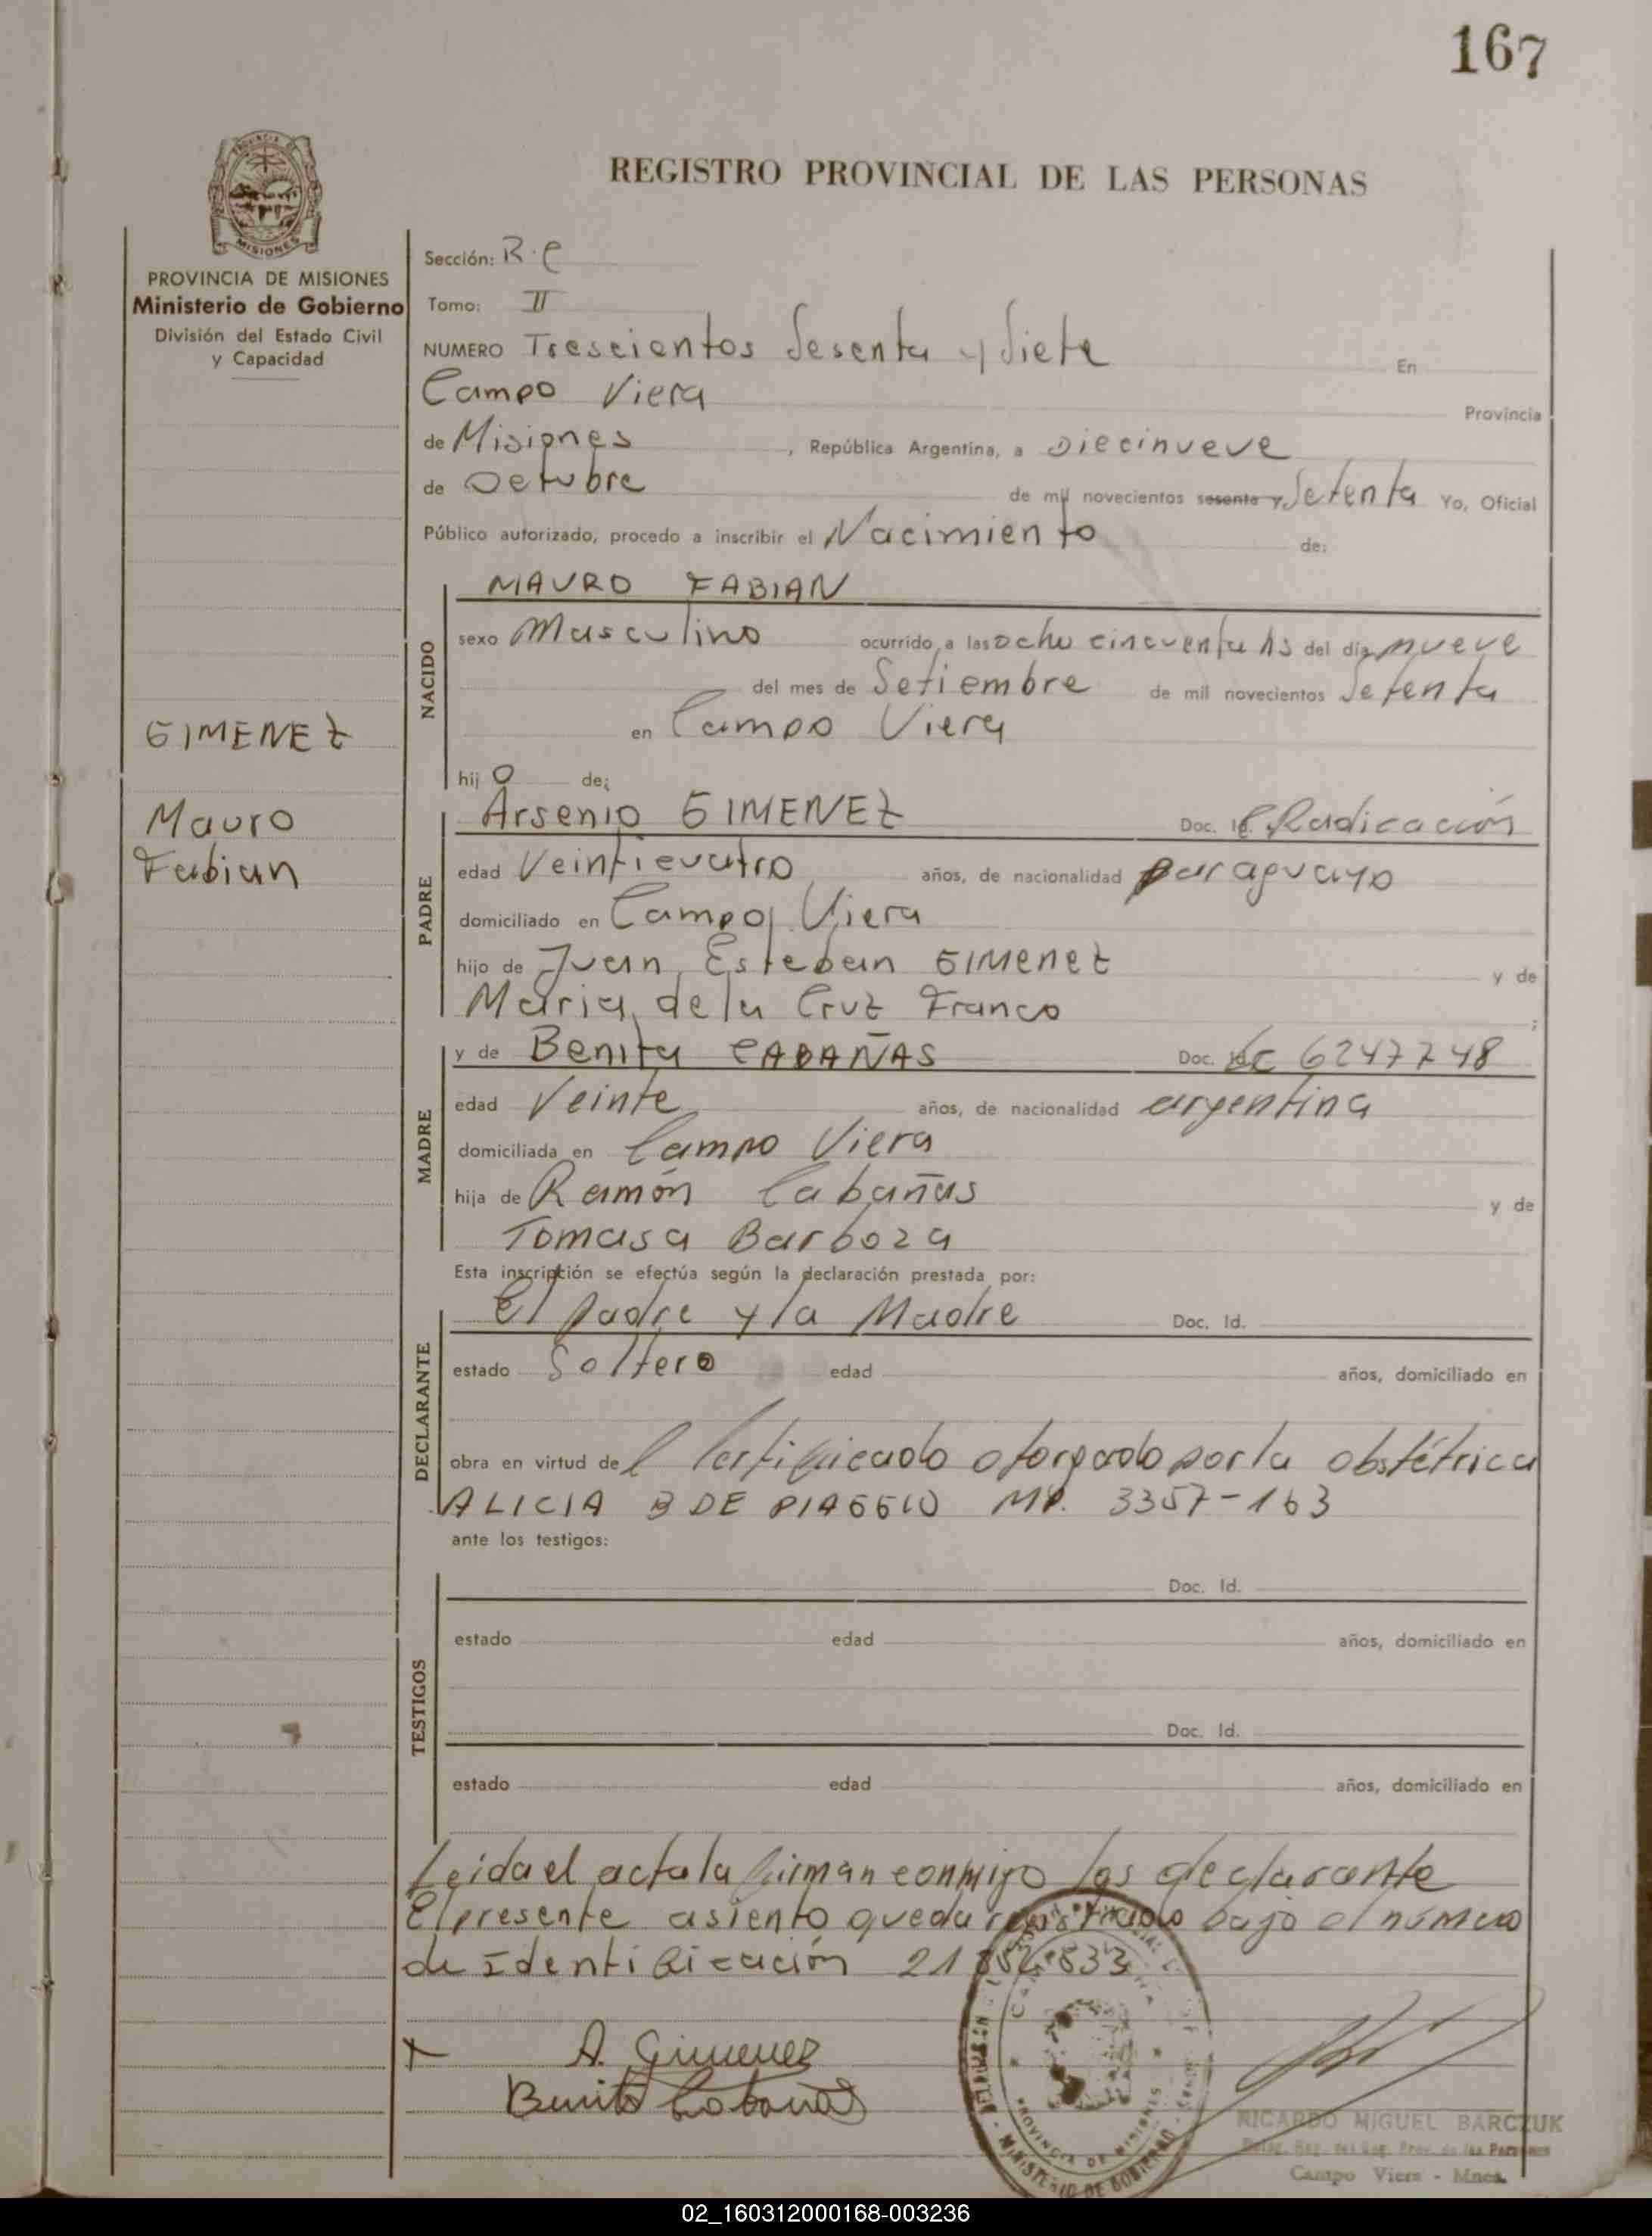 167
REGISTRO PROVINCIAL DE LAS PERSONAS
MISIONES
PROVINCIA DE MISIONES
Ministerio de Gobierno
División del Estado Civil
y Capacidad
GIMENEZ
Mauro
Fabian
Sección: R.C
Tomo: II
NUMERO Trescientos Sesenta y Siete En
Campo Viera Provincia
de Misiones, República Argentina, a Diecinueve
de Octubre de mil novecientos sesenta y Setenta Yo, Oficial
Público autorizado, procedo a inscribir el Nacimiento de:
NACIDO
MAURO FABIAN
sexo Masculino ocurrido a las ocho cincuenta hs del día nueve
del mes de Setiembre de mil novecientos Setenta
en Campo Viera
hij o de:
PADRE
Arsenio GIMENEZ Doc. Id. C. Radicación
edad Veinticuatro años, de nacionalidad paraguayo
domiciliado en Campo Viera
hijo de Juan Esteban GIMenez y de
Maria de la Cruz Franco ;
MADRE
y de Benita CABAÑAS Doc. Id. LC 6247748
edad Veinte años, de nacionalidad argentina
domiciliada en Campo Viera
hija de Ramón Cabañas y de
Tomasa Barboza
Esta inscripción se efectúa según la declaración prestada por:
DECLARANTE
El padre y la Madre Doc. Id.
estado Soltero edad años, domiciliado en
obra en virtud del Certificado otorgado por la obstétrica
ALICIA B DE PIAGGIO MP. 3357-163
ante los testigos:
TESTIGOS
Doc. Id.
estado edad años, domiciliado en
Doc. Id.
estado edad años, domiciliado en
Leida el acta la firman conmigo los declarante
El presente asiento queda registrado bajo el número
de Identificación 21
A. Gimenez
Benita Cabañas
PROVINCIA DE MISIONES
MINISTERIO DE GOBIERNO
RICARDO MIGUEL BARCZUK
Campo Viera - Mnes.
02_160312000168-003236